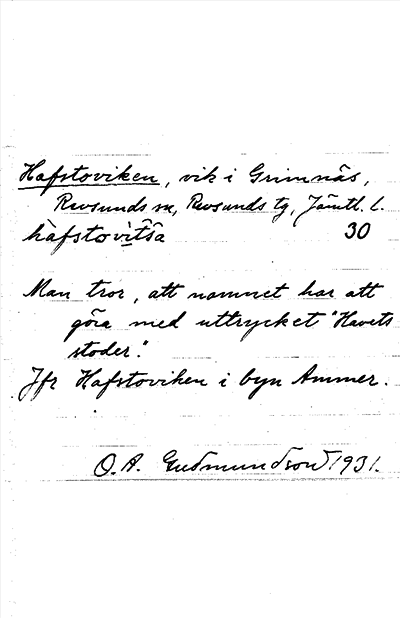 Hafstoviken, vik i Grimnäs,
Revsunds sn, Revsunds tg, Jämtl. l.
hafstovitsa 30
Man tror, att namnet har att
göra med uttrycket "Havets
stoder".
Jfr Hafstoviken i byn Ammer.
O. A. Gudmundson 1931.